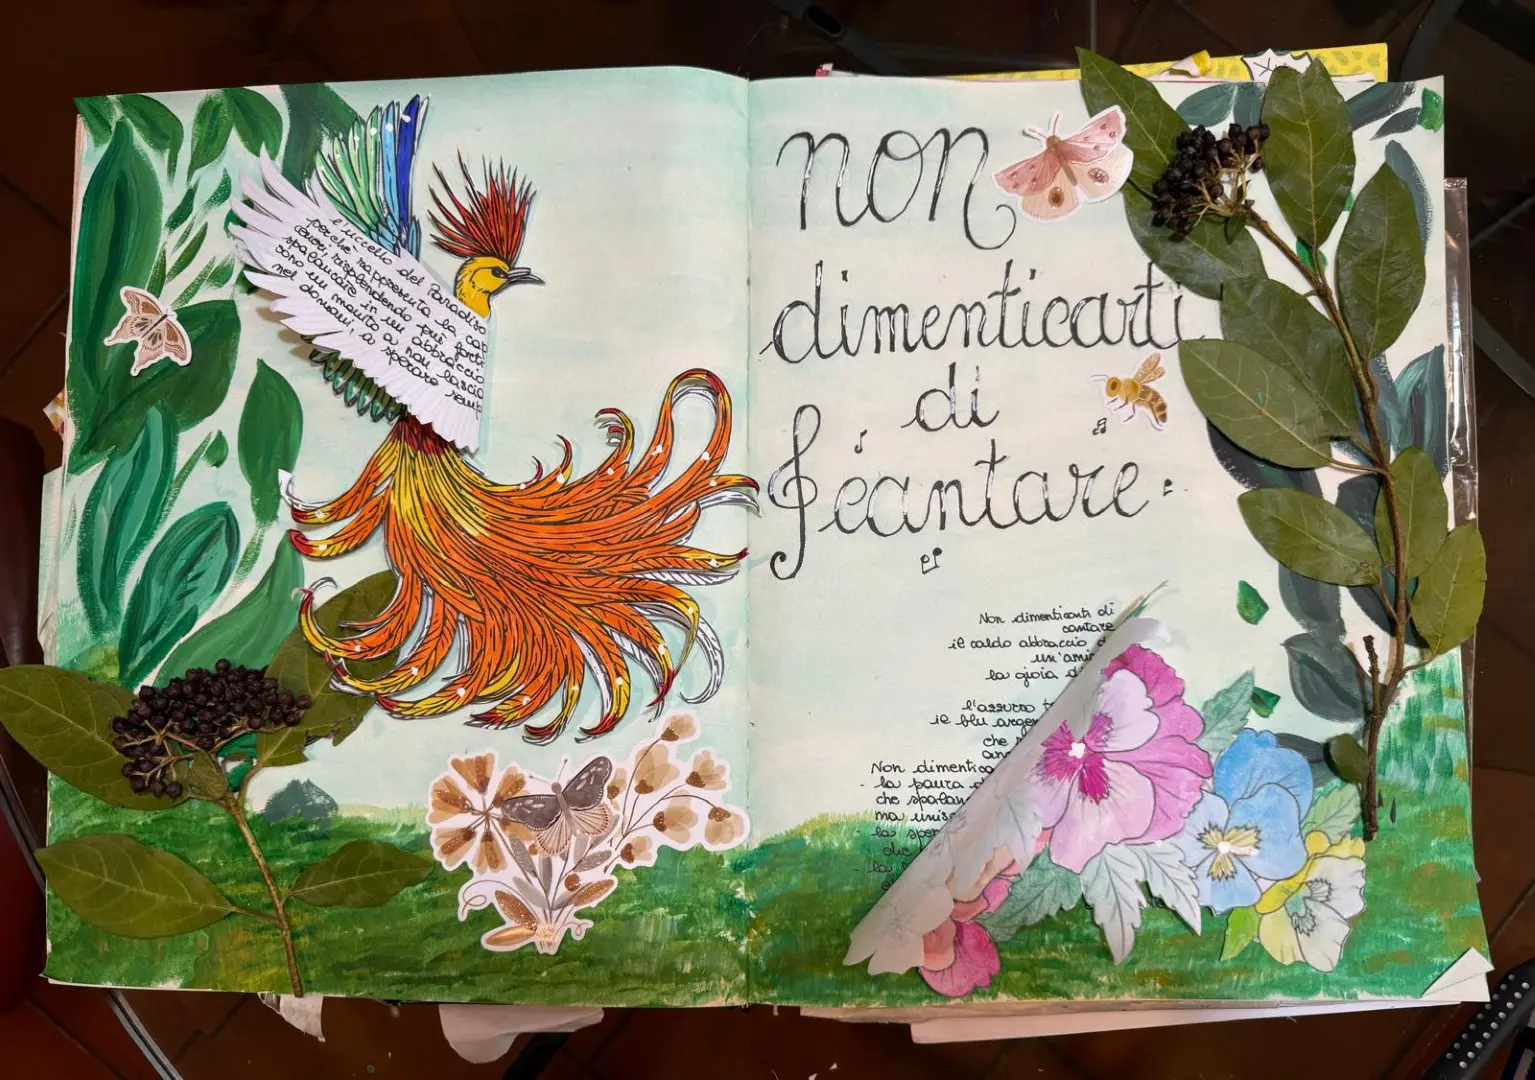 l'uccello del Paradiso
perché rappresenta la cap
fuori, risplendendo più forti
spalancare in un abbraccio
sono un monito a non lascia
nel domani, a sperare semp
non
dimenticarti
di
cantare
Non dimenticarti di
cantare
il caldo abbraccio
un'ami
la gioia di
l'azzurro
il blu argen
che
Non dimentica
- la paura
che spalan
ma unisc
- la sper
che
- la